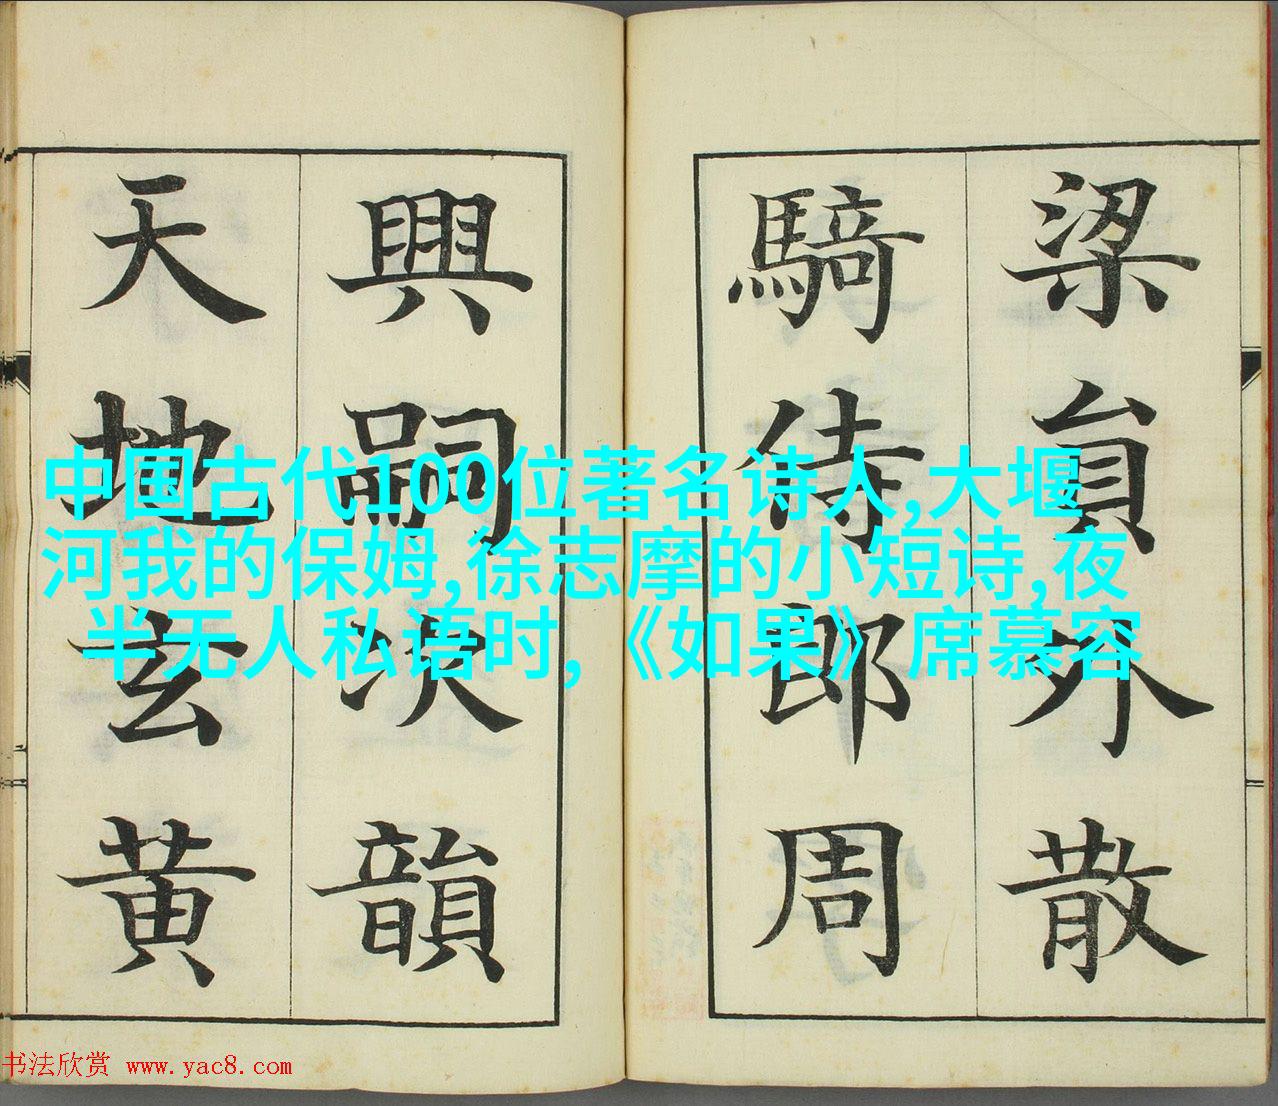 梁貟外散
騎侍郎周
興嗣次韻
天地玄黃
中国古代100位著名诗人,大堰
河我的保姆,徐志摩的小短诗,夜
半无人私语时,《如果》席慕容
书法欣赏 www.yac8.com